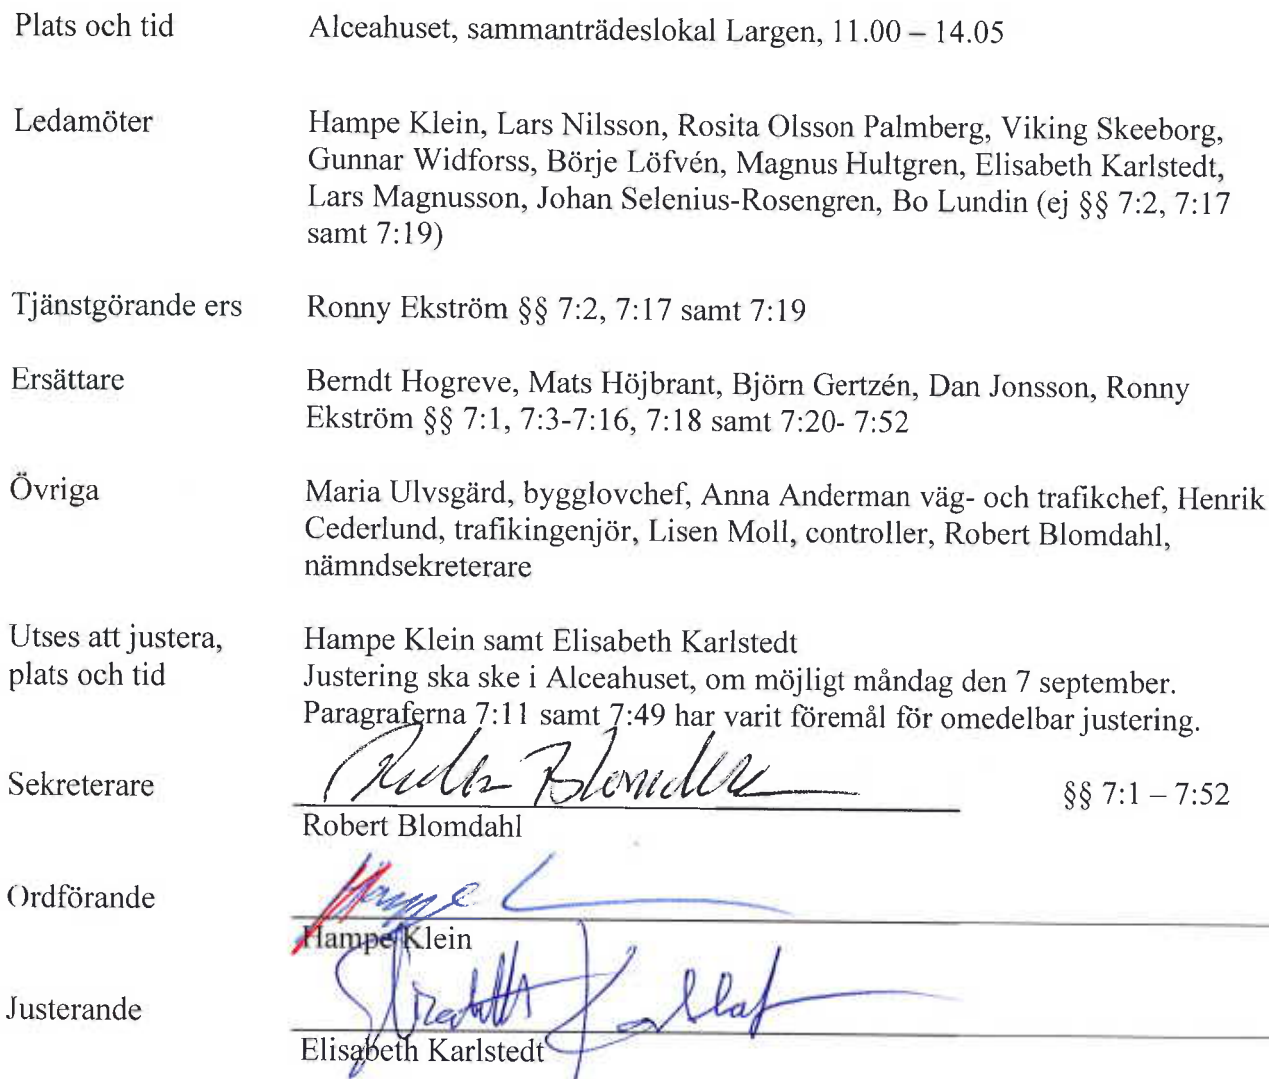 Plats och tid Alceahuset, sammanträdeslokal Largen, 11.00 – 14.05
Ledamöter Hampe Klein, Lars Nilsson, Rosita Olsson Palmberg, Viking Skeeborg,
Gunnar Widforss, Börje Löfvén, Magnus Hultgren, Elisabeth Karlstedt,
Lars Magnusson, Johan Selenius-Rosengren, Bo Lundin (ej §§ 7:2, 7:17
samt 7:19)
Tjänstgörande ers Ronny Ekström §§ 7:2, 7:17 samt 7:19
Ersättare Berndt Hogreve, Mats Höjbrant, Björn Gertzén, Dan Jonsson, Ronny
Ekström §§ 7:1, 7:3-7:16, 7:18 samt 7:20- 7:52
Övriga Maria Ulvsgärd, bygglovchef, Anna Anderman väg- och trafikchef, Henrik
Cederlund, trafikingenjör, Lisen Moll, controller, Robert Blomdahl,
nämndsekreterare
Utses att justera, Hampe Klein samt Elisabeth Karlstedt
plats och tid Justering ska ske i Alceahuset, om möjligt måndag den 7 september.
Paragraferna 7:11 samt 7:49 har varit föremål för omedelbar justering.
Sekreterare §§ 7:1 – 7:52
Robert Blomdahl
Ordförande Hampe
Hampe Klein
Justerande
Elisabeth Karlstedt